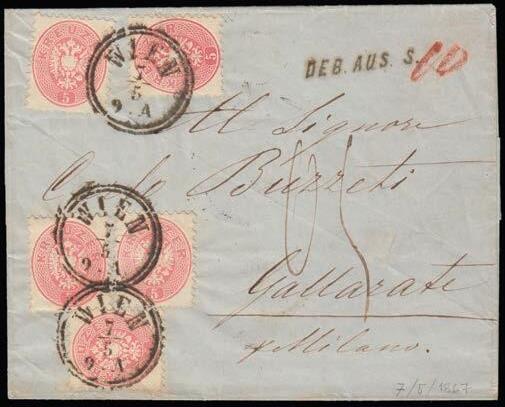 KREUZER 5
5
WIEN
7
5
9. A
DEB. AUS. S.
10
Al Signore
Carlo Buzzeti
Gallarate
Milano.
WIEN
7
5
9. A
5
WIEN
7
5
9. A
7/5/1867